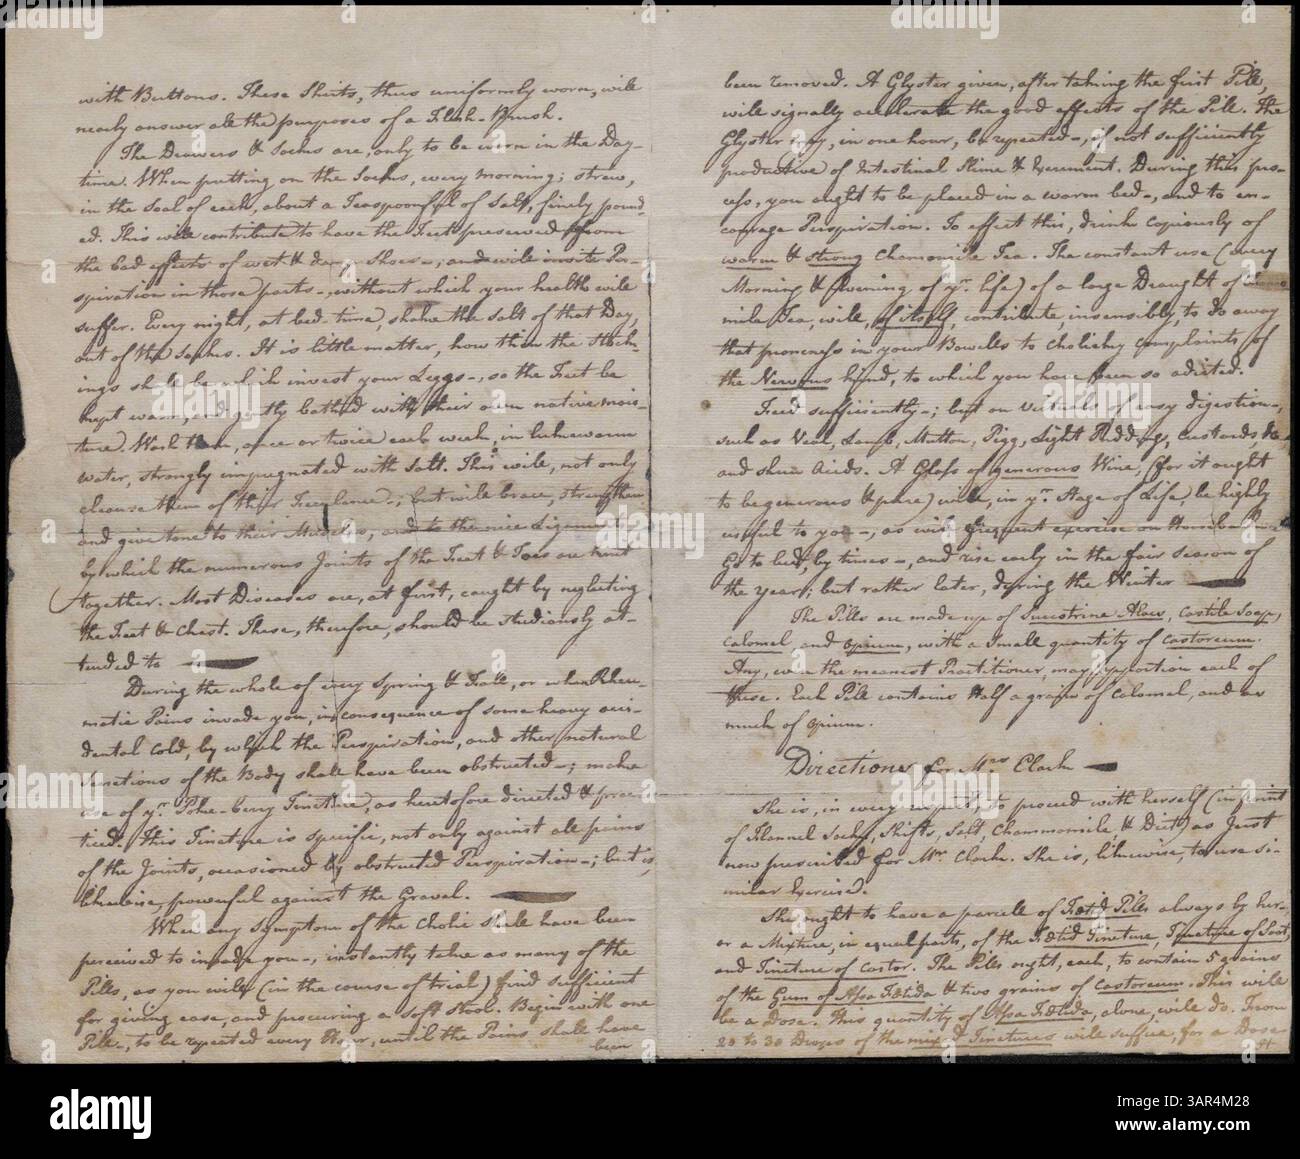 with Buttons. These Shirts, thus uniformly worn, will
nearly answer all the purposes of a Flesh-Brush.
The Drawers & Socks are, only to be worn in the Day-
time. When putting on the Socks, every morning; strew,
in the Soal of each, about a Teaspoonful of Salt, finely pound-
ed. This will contribute to have the Feet preserved from
the bad effects of wet & damp Shoes-; and will invite Per-
spiration in those parts-, without which your health will
suffer. Every night, at bed-time, shake the Salt of that Day,
out of the Socks. It is little matter, how thin the Stock-
ings shall be which invest your Leggs-, so the Feet be
kept warm, and gently bathed with their own native mois-
ture. Wash them, once or twice each week, in lukewarm
water, strongly impregnated with Salt. This will, not only
cleanse them of their; but will brace, strengthen
and give tone to their Muscles, and to the nice Ligaments,
by which the numerous Joints of the Feet & Toes are knit
together. Most Diseases are, at first, caught by neglecting
the Feet & Chest. These, therefore, should be studiously at-
tended to
During the whole of every Spring & Fall, or when Rheu-
matic Pains invade you, in consequence of some heavy acci-
dental Cold, by which the Perspiration, and other natural
Secretions of the Body shall have been obstructed-; make
use of yr. Poke-berry Tincture, as heretofore directed & prac-
ticed. This Tincture is specific, not only against all pains
of the Joints, occasioned by obstructed Perspiration-; but is,
likewise, powerful against the Gravel.
When any Symptom of the Cholic shall have been
perceived to invade you-, instantly take as many of the
Pills, as you will (in the course of trial) find sufficient
for giving ease, and procuring a soft Stool. Begin with one
Pill-, to be repeated every Hour, until the Pains shall have
been
been removed. A Glyster given, after taking the first Pill,
will signally accelerate the good effects of the Pill. The
Glyster may, in one hour, be repeated-, if not sufficiently
productive of Intestinal Slime & Excrement. During this pro-
cess, you ought to be placed in a warm bed-, and to en-
courage Perspiration. To effect this, drink Copiously of
warm & strong Chamomile Tea. The constant use (every
Morning & Evening of yr. life) of a large Draught of
mile Tea, will, of itself, contribute, insensibly, to do away
that proneness in your Bowells to Cholicky Complaints, of
the Nervous kind, to which you have been so adicted.
Feed sufficiently-; but on Victuals of easy digestion-,
such as Veal, Lamb, Mutton, Pigg, Light Puddings, Custards, &c
and shun Acids. A Glass of generous Wine, (for it ought
to be generous & pure) will, in yr. Stage of Life, be highly
useful to you-, as will frequent exercise on Horseback.
Go to bed, by times-, and rise early in the fair season of
the year; but rather later, during the Winter
The Pills are made up of Succotrine Aloes, Castile Soap,
Calomel, and Opium, with a small quantity of Castoreum.
Any, even the nearest Practitioner, may apportion each of
these. Each Pill contains Half a grain of Calomel, and as
much of Opium.
Directions for Mrs Clark
She is, in every respect, to proceed with herself (in point
of Flannel Socks, Shifts, Salt, Chammomile, & Diet) as Just
now prescribed for Mr. Clark. She is, likewise, to use si-
milar Exercise.
She ought to have a parcell of Fœtid Pills always by her-,
or a Mixture, in equal parts, of the Fœtid Tincture, Tincture of Soot,
and Tincture of Castor. The Pills ought, each, to contain 5 grains
of the Gum of Assa Fœtida & two grains of Castoreum. This will
be a Dose. This quantity of Assa Fœtida, alone, will do. From
20 to 30 Drops of the mixed Tinctures will suffice, for a Dose
alamy
Image ID: 3AR4M28
www.alamy.com